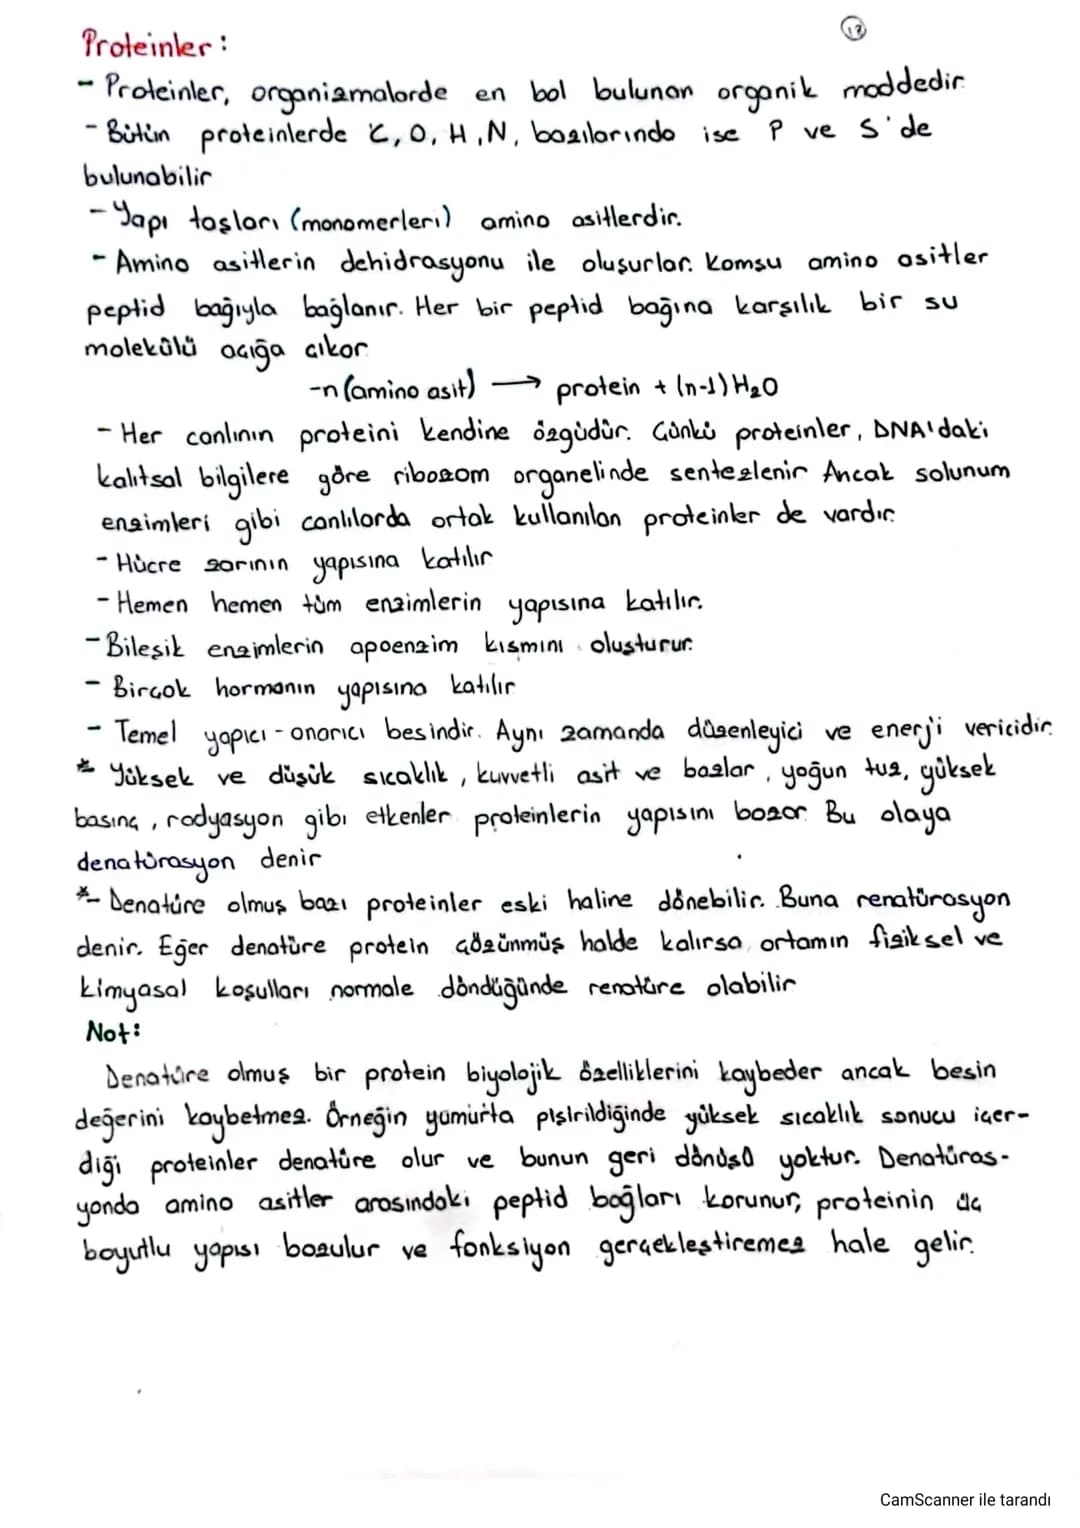 12
Proteinler:
- Proteinler, organizmalarda en bol bulunan organik maddedir.
- Bütün proteinlerde C, O, H, N, bazılarında ise P ve S'de
bulunabilir
- Yapı taşları (monomerleri) amino asitlerdir.
- Amino asitlerin dehidrasyonu ile oluşurlar. Komşu amino asitler
peptid bağıyla bağlanır. Her bir peptid bağına karşılık bir su
molekülü açığa çıkar
-n(amino asit) → protein + (n-1)H₂O
- Her canlının proteini kendine özgüdür. Çünkü proteinler, DNA'daki
kalıtsal bilgilere göre ribozom organelinde sentezlenir Ancak solunum
enzimleri gibi canlılarda ortak kullanılan proteinler de vardır.
- Hücre zarının yapısına katılır
- Hemen hemen tüm enzimlerin yapısına katılır.
- Bileşik enzimlerin apoenzim kısmını oluşturur.
- Birçok hormonın yapısına katılır
- Temel yapıcı - onarıcı besindir. Aynı zamanda düzenleyici ve enerji vericidir.
* Yüksek ve düşük sıcaklık, kuvvetli asit ve bazlar, yoğun tuz, yüksek
basınç, radyasyon gibi etkenler proteinlerin yapısını bozar Bu olaya
denatürasyon denir
*- Denatüre olmuş bazı proteinler eski haline dönebilir. Buna renatürasyon
denir. Eğer denatüre protein çözünmüş halde kalırsa, ortamın fiziksel ve
kimyasal koşulları normale döndüğünde renatüre olabilir
Not:
Denatüre olmuş bir protein biyolojik özelliklerini kaybeder ancak besin
değerini kaybetmez. Örneğin yumurta pişirildiğinde yüksek sıcaklık sonucu içer-
diği proteinler denatüre olur ve bunun geri dönüşü yoktur. Denatüras-
yonda amino asitler arasındaki peptid bağları korunur, proteinin üç
boyutlu yapısı bozulur ve fonksiyon gerçekleştiremez hale gelir.
CamScanner ile tarandı